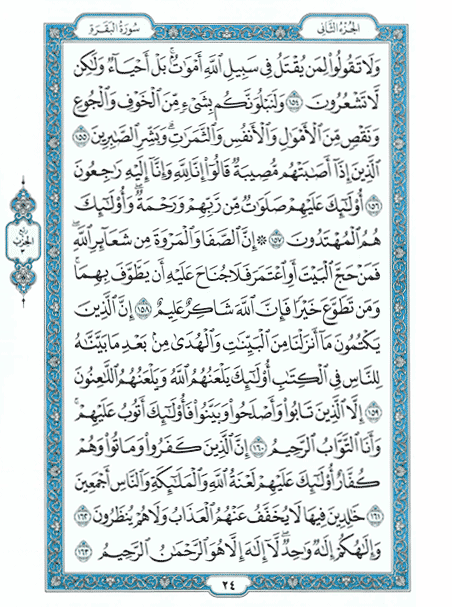 سُورَةُ البَقَرَةِ
الجُزْءُ الثَّانِي
وَلَا تَقُولُوا۟ لِمَن يُقْتَلُ فِى سَبِيلِ ٱللَّهِ أَمْوَٰتٌۢ ۚ بَلْ أَحْيَآءٌ وَلَٰكِن
لَّا تَشْعُرُونَ ١٥٤ وَلَنَبْلُوَنَّكُم بِشَىْءٍ مِّنَ ٱلْخَوْفِ وَٱلْجُوعِ
وَنَقْصٍ مِّنَ ٱلْأَمْوَٰلِ وَٱلْأَنفُسِ وَٱلثَّمَرَٰتِ ۗ وَبَشِّرِ ٱلصَّٰبِرِينَ ١٥٥
ٱلَّذِينَ إِذَآ أَصَٰبَتْهُم مُّصِيبَةٌ قَالُوٓا۟ إِنَّا لِلَّهِ وَإِنَّآ إِلَيْهِ رَٰجِعُونَ
١٥٦ أُو۟لَٰٓئِكَ عَلَيْهِمْ صَلَوَٰتٌ مِّن رَّبِّهِمْ وَرَحْمَةٌ ۖ وَأُو۟لَٰٓئِكَ
هُمُ ٱلْمُهْتَدُونَ ١٥٧ ۞ إِنَّ ٱلصَّفَا وَٱلْمَرْوَةَ مِن شَعَآئِرِ ٱللَّهِ ۖ
فَمَنْ حَجَّ ٱلْبَيْتَ أَوِ ٱعْتَمَرَ فَلَا جُنَاحَ عَلَيْهِ أَن يَطَّوَّفَ بِهِمَا ۚ
وَمَن تَطَوَّعَ خَيْرًا فَإِنَّ ٱللَّهَ شَاكِرٌ عَلِيمٌ ١٥٨ إِنَّ ٱلَّذِينَ
يَكْتُمُونَ مَآ أَنزَلْنَا مِنَ ٱلْبَيِّنَٰتِ وَٱلْهُدَىٰ مِنۢ بَعْدِ مَا بَيَّنَّٰهُ
لِلنَّاسِ فِى ٱلْكِتَٰبِ ۙ أُو۟لَٰٓئِكَ يَلْعَنُهُمُ ٱللَّهُ وَيَلْعَنُهُمُ ٱللَّٰعِنُونَ
١٥٩ إِلَّا ٱلَّذِينَ تَابُوا۟ وَأَصْلَحُوا۟ وَبَيَّنُوا۟ فَأُو۟لَٰٓئِكَ أَتُوبُ عَلَيْهِمْ ۚ
وَأَنَا ٱلتَّوَّابُ ٱلرَّحِيمُ ١٦٠ إِنَّ ٱلَّذِينَ كَفَرُوا۟ وَمَاتُوا۟ وَهُمْ
كُفَّارٌ أُو۟لَٰٓئِكَ عَلَيْهِمْ لَعْنَةُ ٱللَّهِ وَٱلْمَلَٰٓئِكَةِ وَٱلنَّاسِ أَجْمَعِينَ
١٦١ خَٰلِدِينَ فِيهَا ۖ لَا يُخَفَّفُ عَنْهُمُ ٱلْعَذَابُ وَلَا هُمْ يُنظَرُونَ ١٦٢
وَإِلَٰهُكُمْ إِلَٰهٌ وَٰحِدٌ ۖ لَّآ إِلَٰهَ إِلَّا هُوَ ٱلرَّحْمَٰنُ ٱلرَّحِيمُ ١٦٣
٢٤